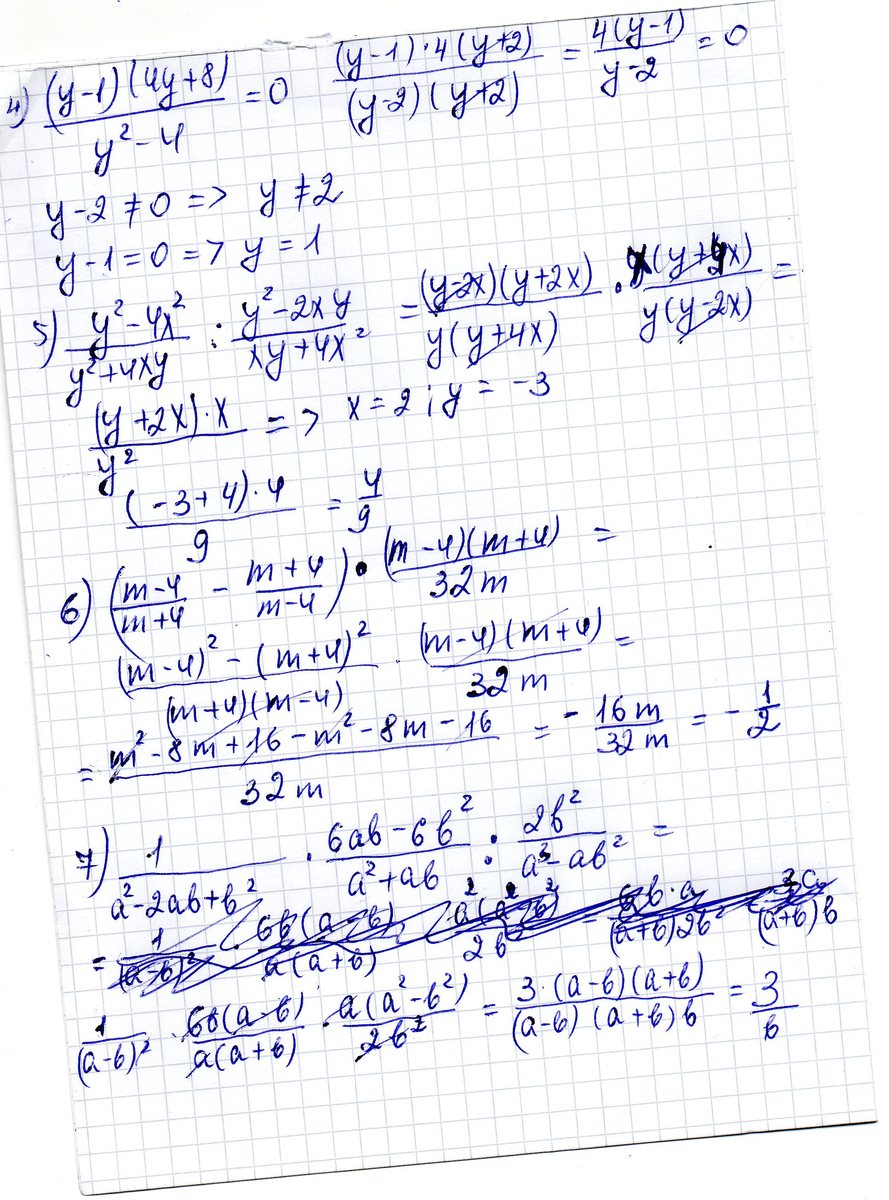 4) (y-1)(4y+8)/(y²-4) = 0   (y-1)·4(y+2)/((y-2)(y+2)) = 4(y-1)/(y-2) = 0
y-2 ≠ 0 => y ≠ 2
y-1 = 0 => y = 1
5) (y²-4x²)/(y²+4xy) : (y²-2xy)/(xy+4x²) = (y-2x)(y+2x)/(y(y+4x)) · x(y+4x)/(y(y-2x)) =
(y+2x)·x/y² => x = 2; y = -3
(-3+4)·4/9 = 4/9
6) ((m-4)/(m+4) - (m+4)/(m-4)) · (m-4)(m+4)/(32m) =
((m-4)² - (m+4)²)/((m+4)(m-4)) · (m-4)(m+4)/(32m) =
= (m²-8m+16-m²-8m-16)/(32m) = -16m/(32m) = -1/2
7) 1/(a²-2ab+b²) · (6ab-6b²)/(a²+ab) : 2b²/(a³-ab²) =
1/(a-b)² · 6b(a-b)/(a(a+b)) · a(a²-b²)/(2b²) = 3·(a-b)(a+b)/((a-b)(a+b)b) = 3/b